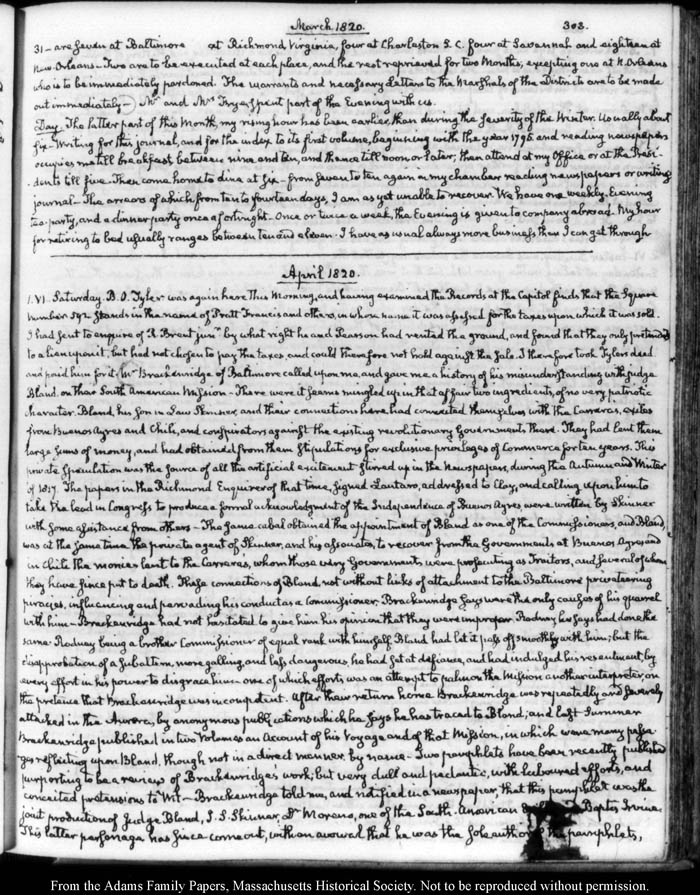 March. 1820. 303.
31— are seven at Baltimore at Richmond, Virginia, four at Charleston S. C. four at Savannah and eighteen at
New-Orleans— Two are to be executed at each place, and the rest reprieved for two Months, excepting one at N. Orleans
who is to be immediately pardoned. The warrants and necessary Letters to the Marshals of the Districts are to be made
out immediately— Mr and Mrs Frye, spent part of the Evening with us.
Day. The latter part of this Month, my rising hour has been earlier, than during the severity of the Winter. Usually about
six— Writing for this journal, and for the index to its first volume, beginning with the year 1795 and reading newspapers
occupies me till breakfast between nine and ten, and thence till noon or later; then attend at my Office or at the Presi-
dents till five. Then come home to dine at six— from seven to ten again in my chamber reading newspapers or writing
journal— The arrears of which from ten to fourteen days, I am as yet unable to recover. We have one weekly Evening
tea-party, and a dinner party once a fortnight— Once or twice a week, the Evening is given to company abroad. My hour
for retiring to bed usually ranges between ten and eleven— I have as usual always more business than I can get through
April 1820.
1. VI. Saturday. B. O. Tyler was again here this Morning, and having examined the Records at the Capitol finds that the Square
Number 592 stands in the name of Pratt Francis and others, in whose name it was assessed for the taxes upon which it was sold.
I had sent to enquire of R. Brent junr by what right he and Pearson had rented the ground, and found that they only pretended
to a lien upon it, but had not chosen to pay the taxes and could therefore not hold against the sale. I therefore took Tylers deed
and paid him for it. Mr Brackenridge of Baltimore called upon me, and gave me a history of his misunderstanding with judge
Bland, on their South American Mission— There were it seems mingled up in that affair two ingredients, of no very patriotic
character. Bland, his Son in Law Skinner, and their connections here had connected themselves with the Carreras, exiles
from Buenos Ayres and Chili, and conspirators against the existing revolutionary Governments there. They had lent them
large sums of money, and had obtained from them stipulations for exclusive privileges of Commerce for ten years. This
private speculation was the source of all the artificial excitement stirred up in the Newspapers, during the Autumn and Winter
of 1817. The papers in the Richmond Enquirer of that time, signed Lautaro, addressed to Clay, and calling upon him to
take the lead in Congress to produce a formal acknowledgment of the Independence of Buenos Ayres were written by Skinner
with some assistance from others— The same cabal obtained the appointment of Bland as one of the Commissioners, and Bland,
was at the same time the private agent of Skinner, and his associates, to recover from the Governments at Buenos Ayres and
in Chili the monies lent to the Carreras, whom those very Governments were prosecuting as Traitors, and several of whom
they have since put to death. These connections of Bland, not without links of attachment to the Baltimore privateering
piracies, influencing and pervading his conduct as a Commissioner, Brackenridge says were the only causes of his quarrel
with him— Brackenridge had not hesitated to give him his opinion that they were improper. Rodney he says had done the
same. Rodney being a brother Commissioner of equal rank with himself Bland had let it pass off smoothly with him; but the
disapprobation of a subaltern, more galling, and less dangerous, he had set at defiance, and had indulged his resentment, by
every effort in his power to disgrace him— one of which efforts was an attempt to palm on the Mission another interpreter, on
the pretence that Brackenridge was incompetent. After their return home Brackenridge was repeatedly and severely
attacked in the Aurora, by anonymous publications which he says he has traced to Bland; and last Summer
Brackenridge published in two Volumes an Account of his Voyage and of that Mission, in which were many passa-
ges reflecting upon Bland, though not in a direct manner by name— Two pamphlets have been recently published
purporting to be a review of Brackenridge's work; but very dull and pedantic, with laboured efforts, and
conceited pretensions to Wit— Brackenridge told me, and notified in a newspaper that this pamphlet was the
joint production of Judge Bland, J. S. Skinner, Dr Moreno, one of the South-American Baptis Irvine.
This latter personage has since come out, with an avowal that he was the sole author of the pamphlets,
From the Adams Family Papers, Massachusetts Historical Society. Not to be reproduced without permission.